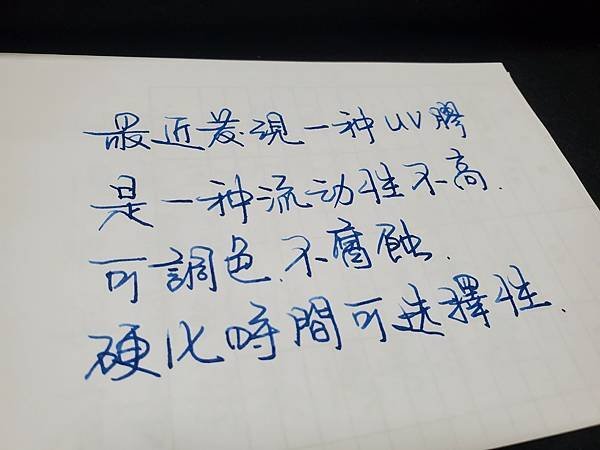 最近发現一种UV膠
是一种流动性不高.
可調色.不腐蝕.
硬化時間可选擇性.